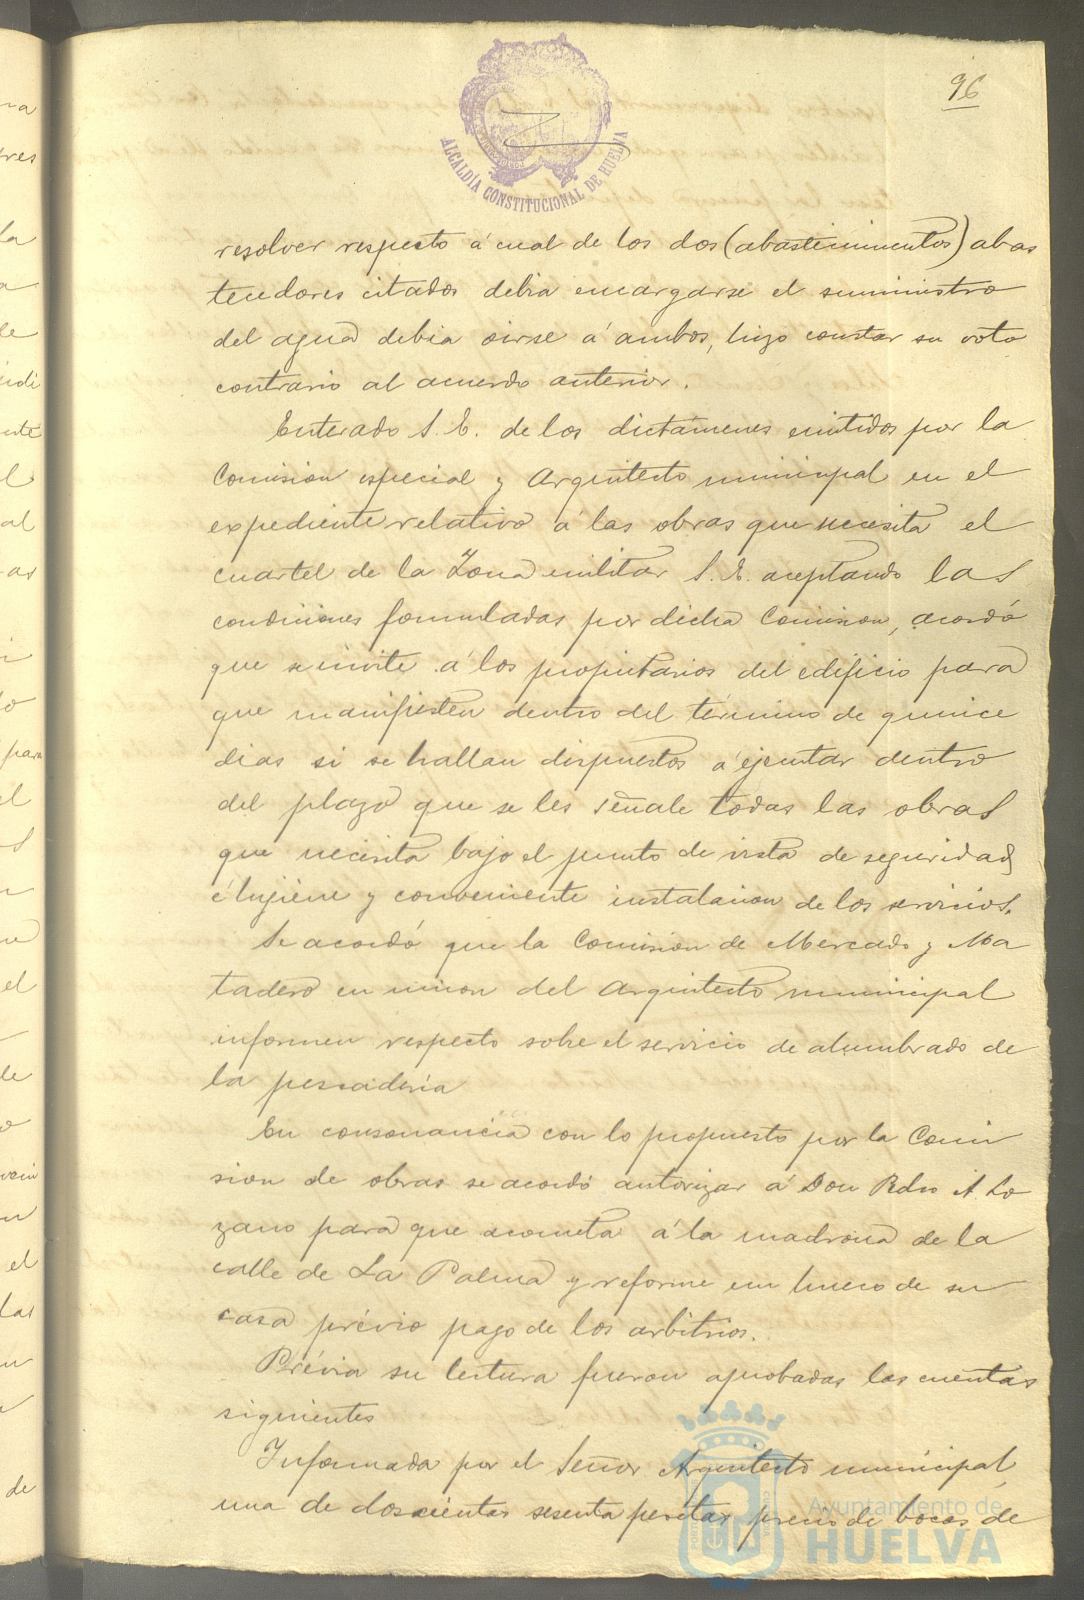 96
ALCALDÍA CONSTITUCIONAL DE HUELVA
resolver respecto á cual de los dos (abastecimientos) abas
tecedores citados debia encargarse el suministro
del agua debia oirse á ambos, hizo constar su voto
contrario al acuerdo anterior.
Enterado S. E. de los dictámenes emitidos por la
Comision especial y Arquitecto municipal en el
expediente relativo á las obras que necesita el
cuartel de la Zona militar S. E. aceptando las
condiciones formuladas por dicha Comision, acordó
que se invite á los propietarios del edificio para
que manifiesten dentro del término de quince
dias si se hallan dispuestos á ejecutar dentro
del plazo que se les señale todas las obras
que necesita bajo el punto de vista de seguridad
é higiene y conveniente instalacion de los servicios.
Se acordó que la Comision de Mercado y Ma
tadero en union del Arquitecto municipal
informen respecto sobre el servicio de alumbrado de
la pescadería
En consonancia con lo propuesto por la Comi
sion de obras se acordó autorizar á Don Pedro A. Lo
zano para que acometa á la madrona de la
calle de La Palma y reforme un hueco de su
casa prévio pago de los arbitrios.
Prévia su lectura fueron aprobadas las cuentas
siguientes
Informada por el Señor Arquitecto municipal
una de doscientas sesenta pesetas precio de bocas de
Ayuntamiento de
HUELVA